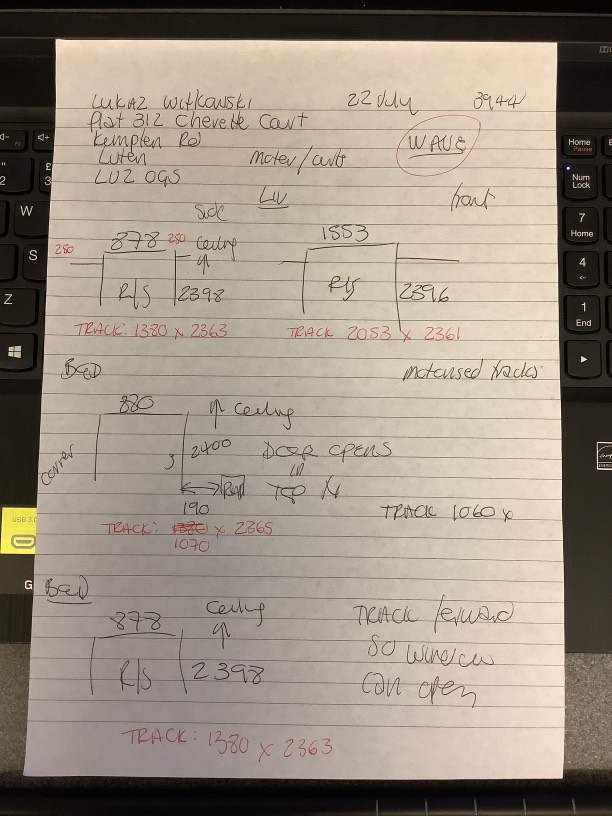 LUKAZ Witkowski 22 July 3944
Flat 312 Chevette Court
Kempten Rd WAVE
Luten Moter/curts
LU2 0GS
Side LIV front
250 878 250 Ceiling 1553
R/S 2398 R/S 2396
TRACK: 1380 x 2363 TRACK 2053 x 2361
BED motorised tracks
880 Ceiling
corner 2400 DOOR OPENS
in
RAD TOP
190 TRACK 1060 x
TRACK: 1380 x 2365
1070
BED
878 Ceiling TRACK forward
R/S 2398 so window
can open
TRACK: 1380 x 2363
Home
Pause
Num
Lock
7
Home
4
1
End
2
£
3
W
S
Z
USB 3.0
G